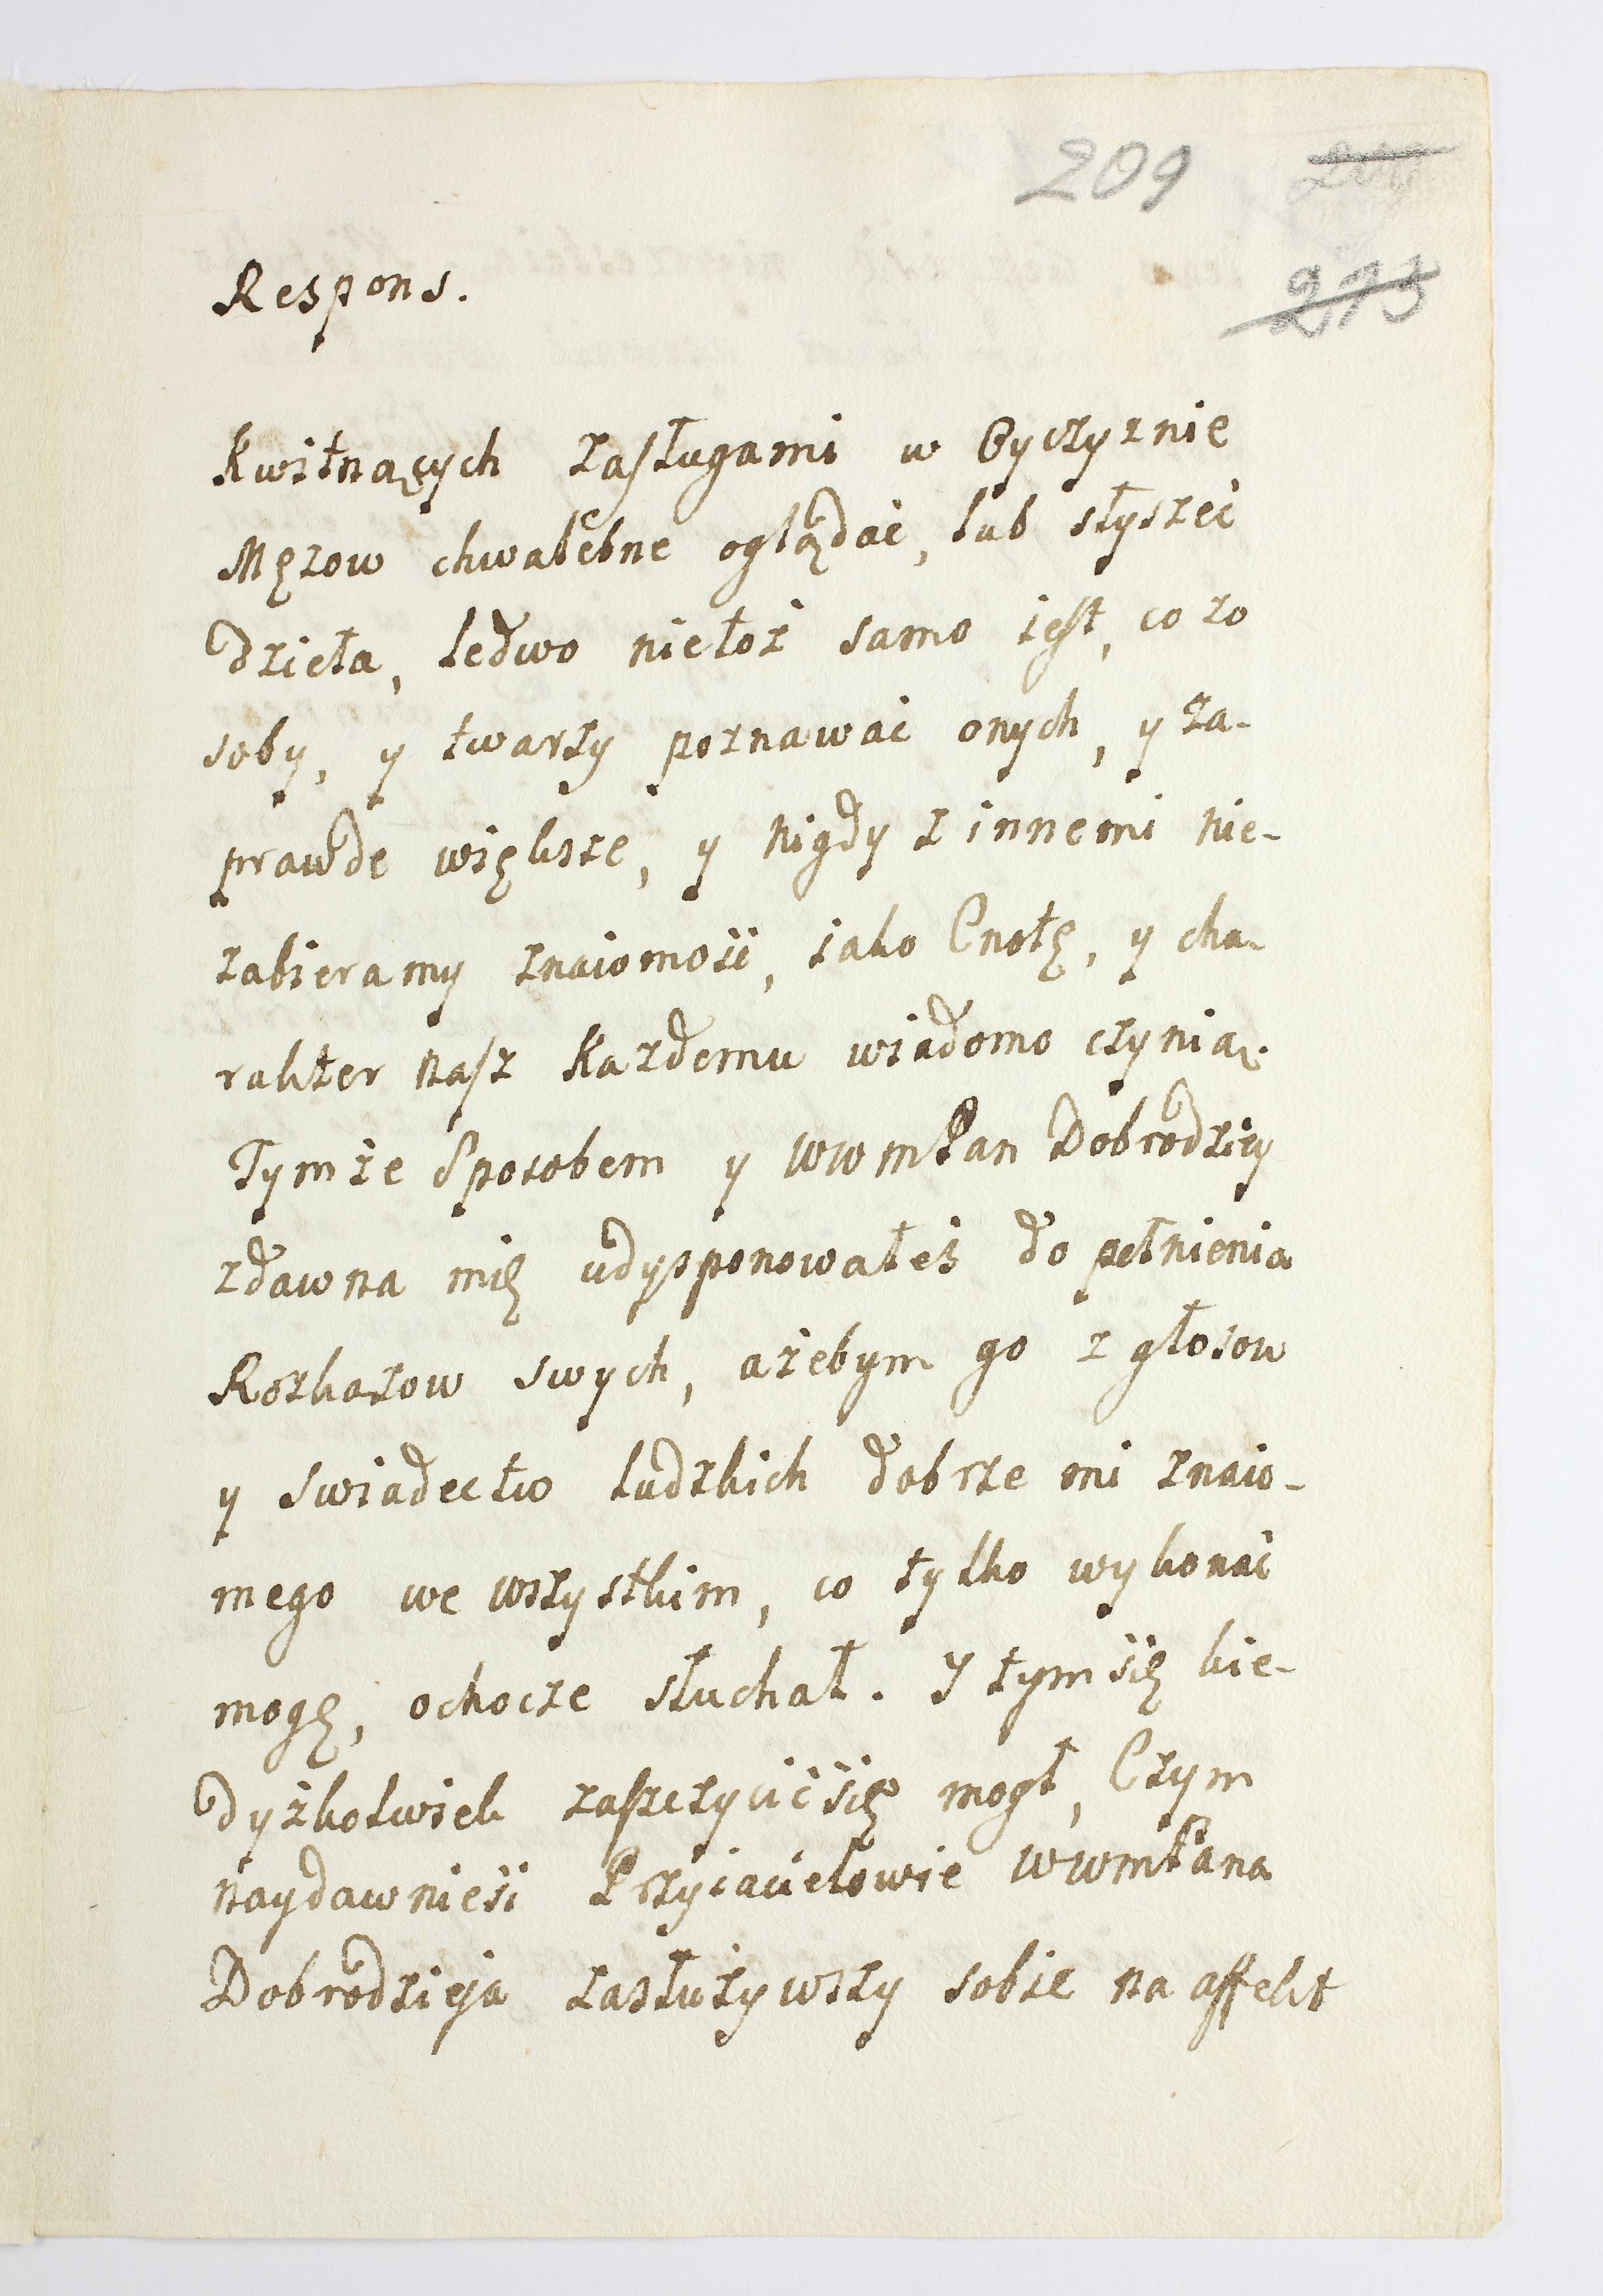 209
273
Respons.
Kwitnących zasługami w Oyczyznie
Męzow chwalebne oglądać, lub słyszeć
dzieła, ledwo nietoż samo iest, co zo
soby, y twarzy poznawać onych, y za-
prawde większe, y nigdy z innemi nie-
zabieramy znaiomości, iako Cnotę, y cha-
rakter nasz Kazdemu wiadomo czynią.
Tymże Sposobem y WWmPan Dobrodziey
zdawna mię udysponowałeś do pełnienia
Rozkazow swych, ażebym go z głosow
y swiadectw ludzkich dobrze mi znaio-
mego we wszystkim, co tylko wykonać
mogę, ochocze słuchał. Y tym się kie-
dyżkolwiek zaszczycić się mogł, Czym
naydawnieśi Przyiacielowie WWmPana
Dobrodzieja zasłużywszy sobie na affekt